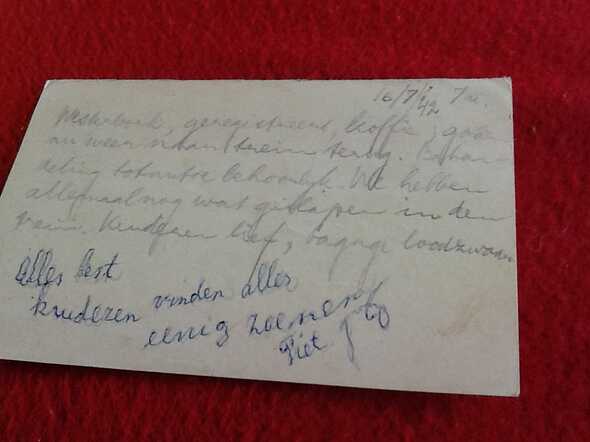 16/7/42 7u.
Westerbork, geregistreerd, koffie, gaan
nu weer naar trein terug. Behan-
deling tot nu toe behoorlijk. We hebben
allemaal nog wat geslapen in den
trein. Kinderen lief, bagage loodzwaar
Alles best
kinderen vinden alles
eenig zoenen
Piet